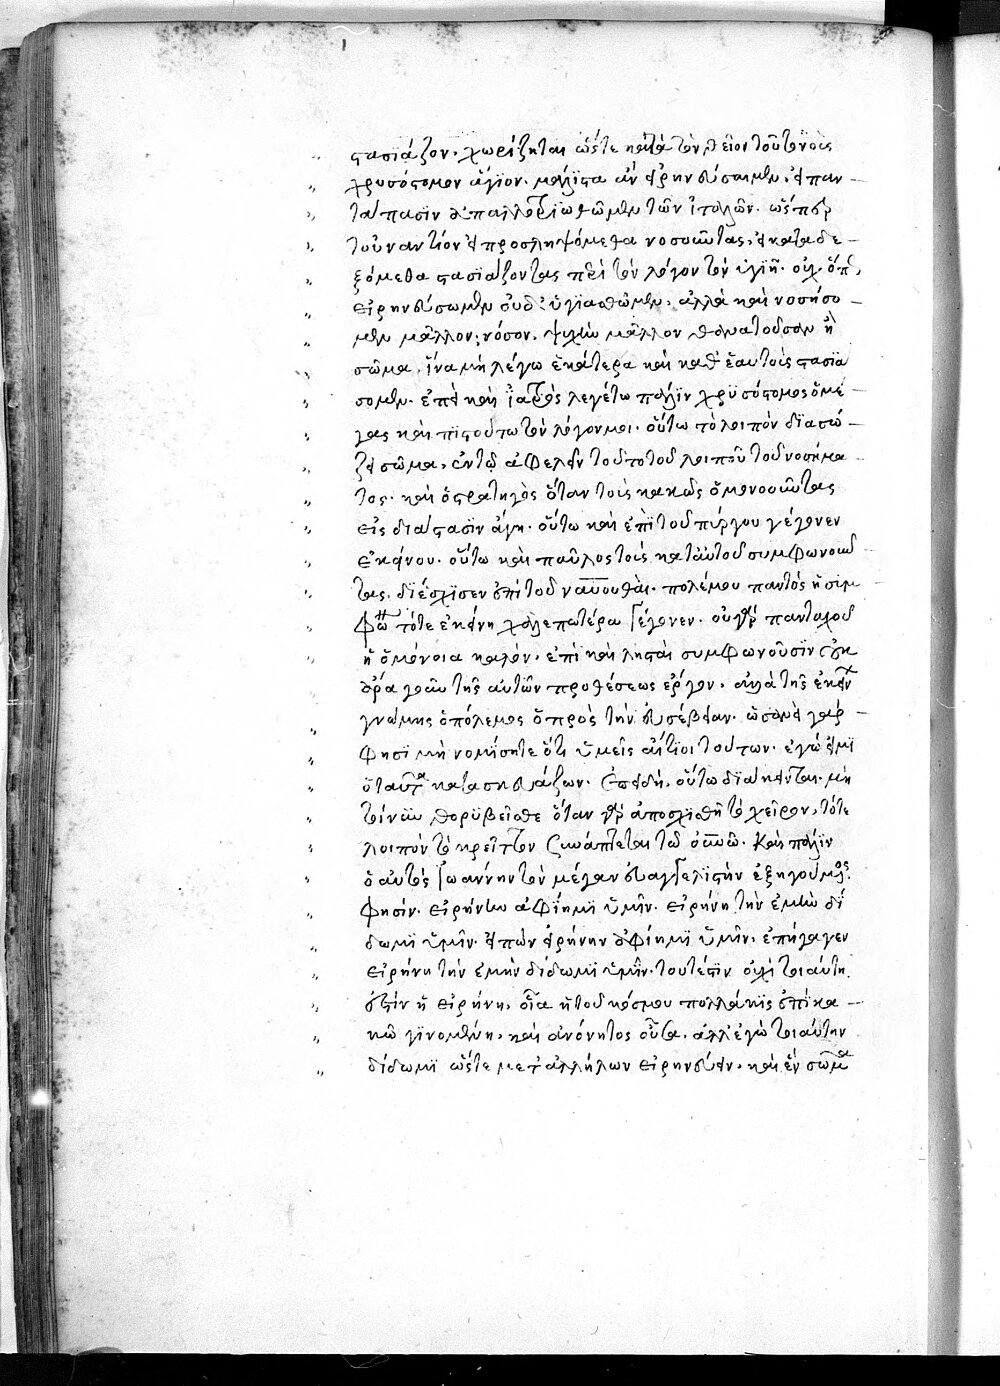 στασιάζον· χωρίζηται ὥστε κατὰ τὸν θεῖον τουτονοὶς
χρυσόστομον ἅγιον· μάλιστα ἂν εἰρηνεύσαιμεν, εἰ παν
ταπασϊν ἀπαλλοτριωθῶμεν τῶν ἰταλῶν· ὥσπερ
τοὐναντίον εἰ προσληψόμεθα νοσοῦντας, εἰ καταδε
ξόμεθα στασϊάζοντας περὶ τὸν λόγον τὸν ὑγιῆ· οὐχ ὅπως
εἰρηνεύσωμεν οὐδ' ὑγιασθῶμεν, ἀλλὰ καὶ νοσήσο
μεν μᾶλλον· νόσον, ψυχὴν μᾶλλον θανατοῦσαν ἢ
σῶμα, ἵνα μὴ λέγω ἑκάτερα καὶ καθ' ἑαυτοὺς στασϊά
σομεν· ἐπεὶ καὶ ἰατρὸς λεγέτω πάλϊν χρϋσόστομος ὁ μέ
γας καὶ πιστούτω τὸν λόγον μοι· οὕτω τὸ λοιπὸν δϊασώ
ζει σῶμα, ἐν τῷ ἀφελεῖν τοῦτο τοῦ λοιποῦ τοῦ νοσήμα
τος· καὶ ὁ στρατηγὸς ὅταν τοὺς κακῶς ὁμονοοῦντας
εἰς διάστασϊν ἄγη· οὕτω καὶ ἐπὶ τοῦ πύργου γέγονεν
ἐκείνου· οὕτω καὶ παῦλος τοὺς κατ' αὐτοῦ συμφωνοῦν
τας, δϊέσχϊσεν ἐπὶ τοῦ ναβουθαὶ· πολέμου παντὸς ἡ συμ
φωνία τότε ἐκείνη χαλεπωτέρα γέγονεν· οὐ γὰρ πανταχοῦ
ἡ ὁμόνοια καλόν, ἐπεὶ καὶ λησταὶ συμφωνοῦσϊν οὐκ
ἄρα γοῦν τῆς αὐτῶν προθέσεως ἔργον, ἀλλὰ τῆς ἐκείνων
γνώμης ὁ πόλεμος ὁ πρὸς τὴν εὐσέβειαν· ὡσανεὶ γάρ
φησι μὴ νομίσητε ὅτι ὑμεῖς αἴτϊοι τούτων· ἐγώ εἰμϊ
ὁ ταῦτα κατασκευάζων· ἐπειδὴ, οὕτω δϊάκεινται· μὴ
τοίνυν θορϋβεῖσθε ὅταν γὰρ ἀποσχϊσθῆ τὸ χεῖρον, τότε
λοιπὸν τὸ κρεῖττον συνάπτεται τῶ οὐρανῶ· Καὶ πάλϊν
ὁ αὐτὸς ἰωάννην τὸν μέγαν εὐαγγελϊστὴν ἐξηγούμενος,
φησίν· εἰρήνην ἀφίημϊ ὑμῖν· εἰρήνη τὴν ἐμὴν δί
δωμϊ ὑμῖν· εἰπὼν εἰρήνην ἀφίημϊ ὑμῖν, ἐπήγαγεν
εἰρήνη τὴν ἐμὴν δίδωμϊ ὑμῖν· τουτέστϊν οὐχὶ τοιαύτη
ἐστὶν ἡ εἰρήνη, οἵα ἡ τοῦ κόσμου πολλάκϊς ἐπὶ κα
κῶ γϊνομένη, καὶ ἀνόνητος οὖσα, ἀλλ' ἐγὼ τοιαύτην
δίδωμϊ ὥστε μετ' ἀλλήλων εἰρηνεύειν, καὶ ἓν σῶμα